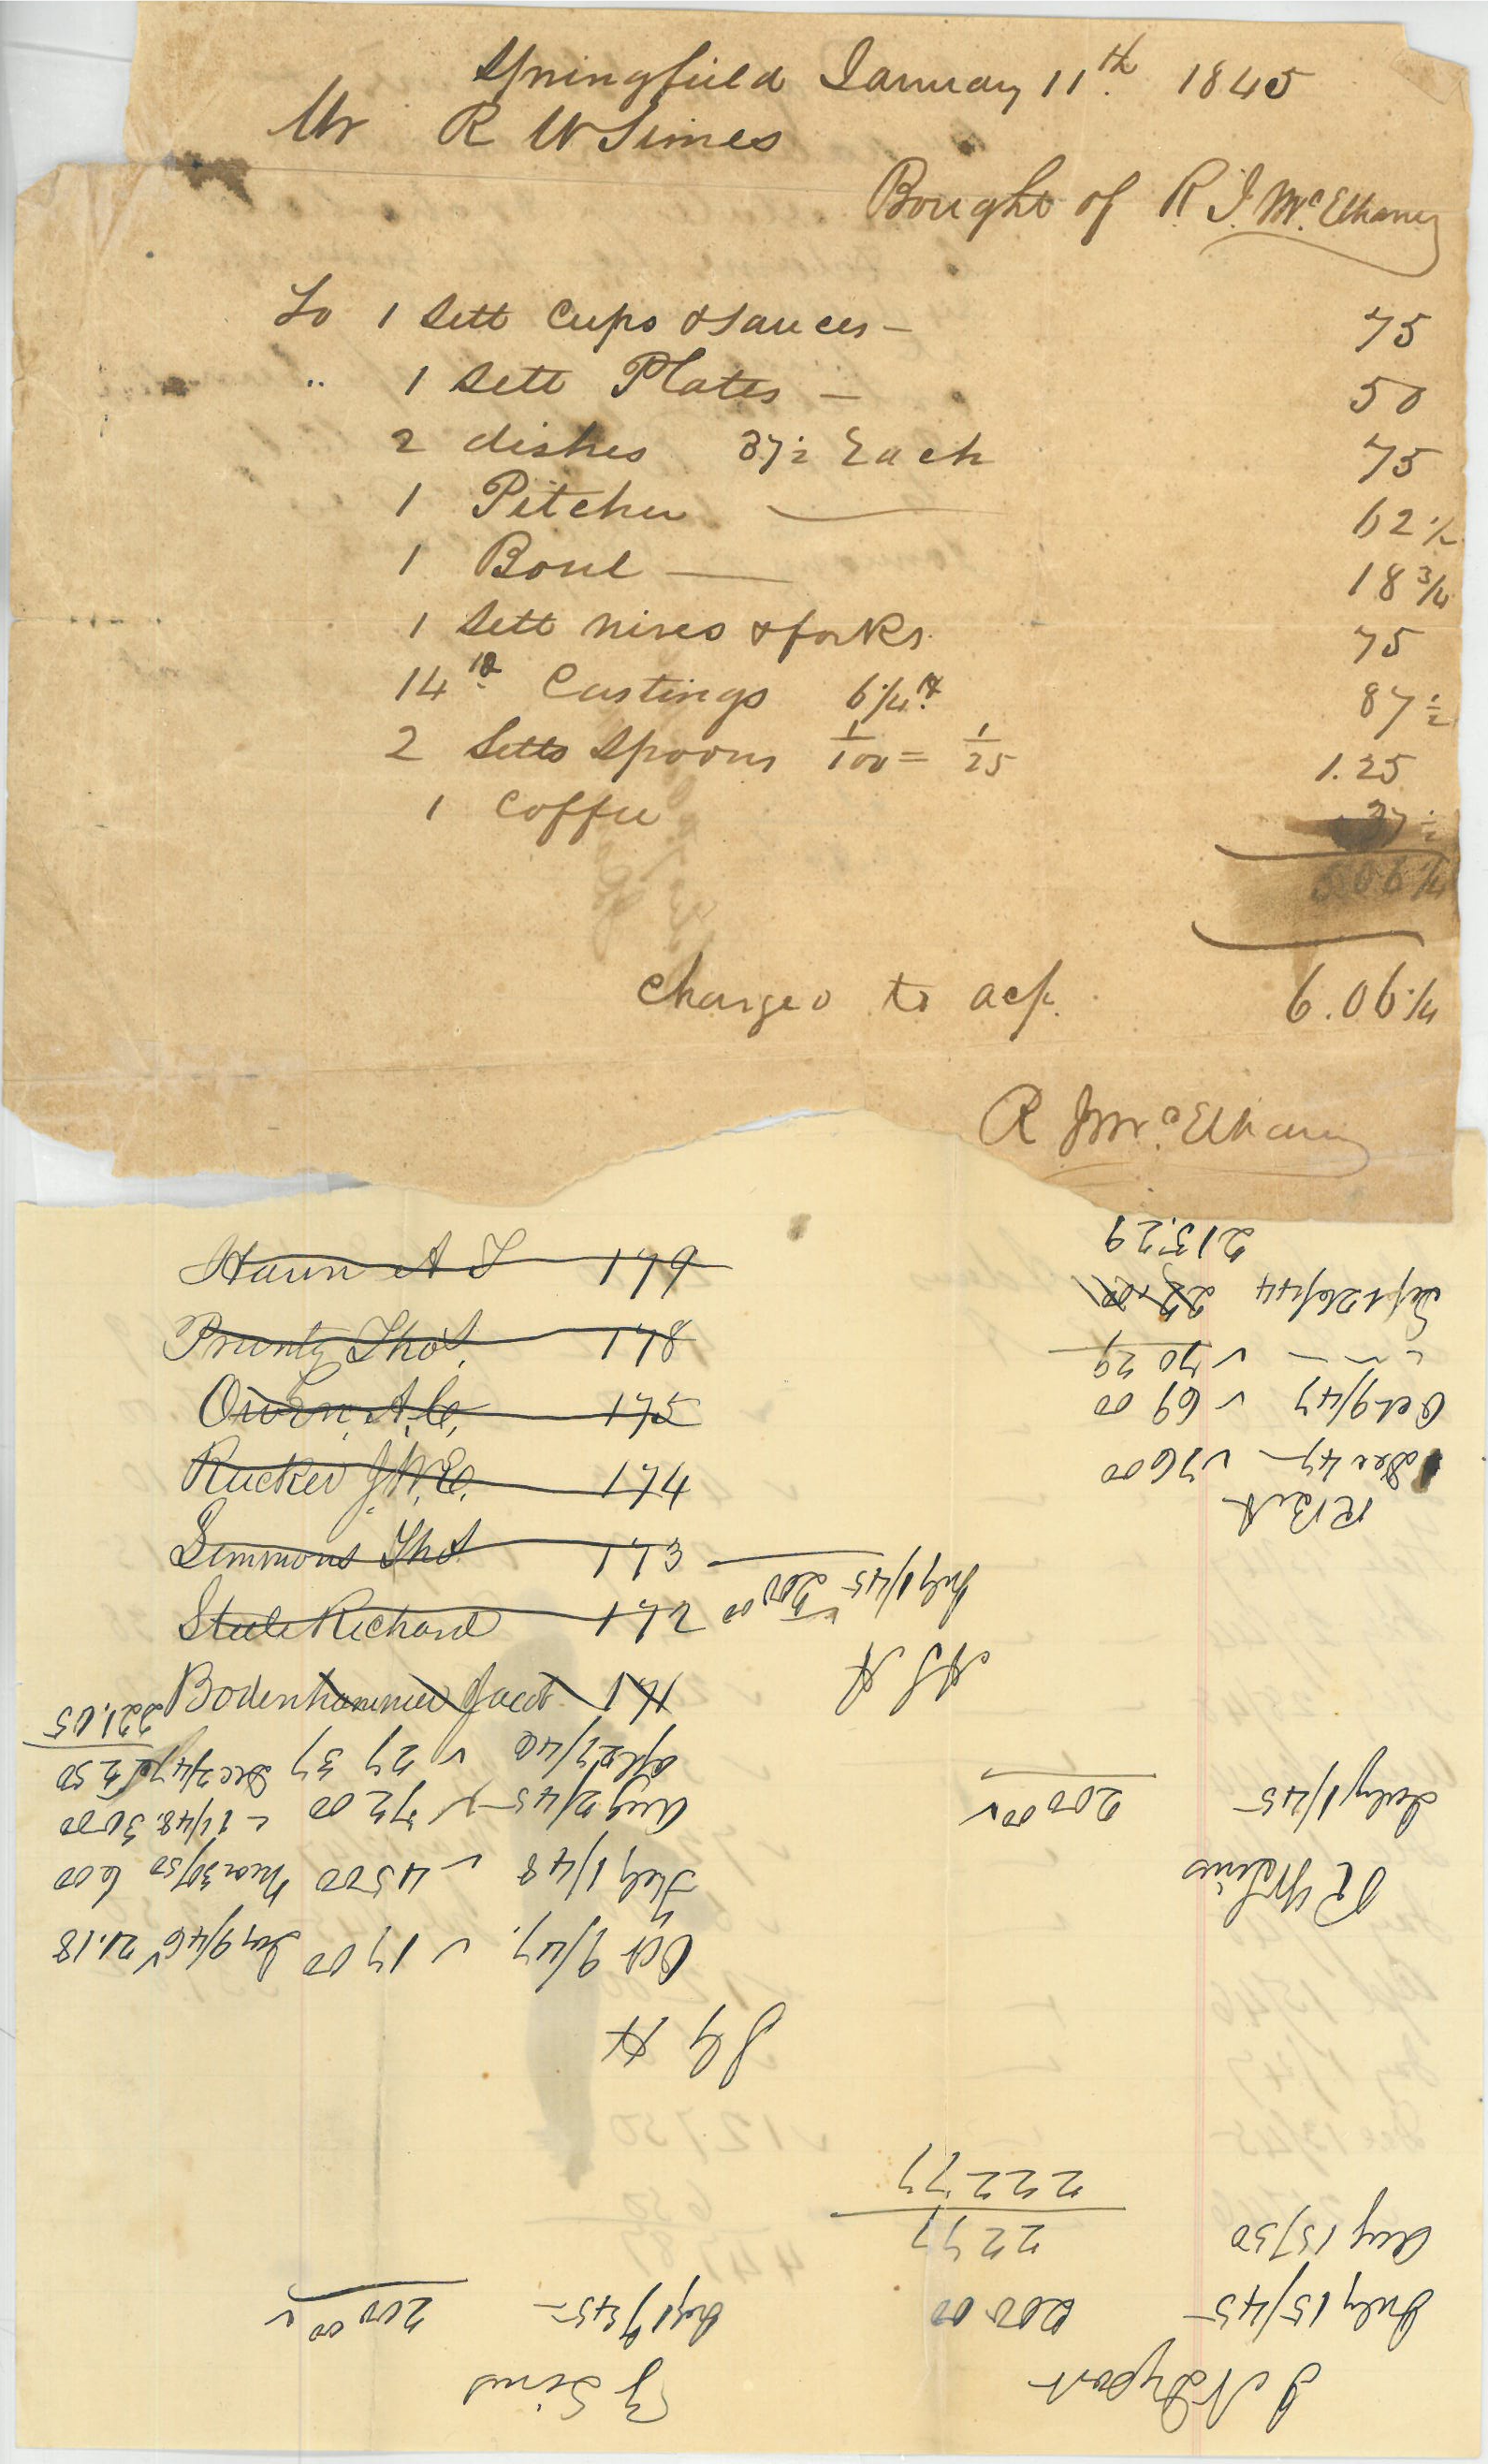 Springfield January 11th 1845
Mr R W Simes
Bought of R. J. McElhaney
To 1 Sett Cups & Sauces — 75
" 1 Sett Plates — 50
2 dishes 37½ Each 75
1 Pitcher — 62½
1 Boul — 18¾
1 Sett nives & forks 75
14 lb Castings 6¼ 87½
2 Setts Spoons 1/100 = 1/25 1.25
1 Coffee 37½
5.06¼
Charged to act. 6.06¼
R J McElhaney
Haun A S 176
Prunty Thos. 178
Owen, A. C. 175
Rucker J. W. E. 174
Simmons Thos 173
Steele Richard 172
Bodenhammer Jacob
J N
July 15/45 — 200 00
Aug 15/50 22 77
222 77
Z Sims
200 00 ✓
J G H
Oct 9/47. ✓ 17 00 Jan 9/46 ✓ 21.18
July 1/48 ✓ 45 00 Mar 30/50 6 00
Aug 2/45 — ✓ 72 00 - 1/48. 30 00
Apl 27/46 ✓ 27 37 Dec 2/47 2 50
221.05
R W Sims
July 1/45 — 200 00 ✓
A S H
July 1/45 — 200.00
R B H
Dec 47 — ✓ 76 00
Oct 9/47 ✓ 69 00
" — — ✓ 70 29
Sept 26/44
215.29